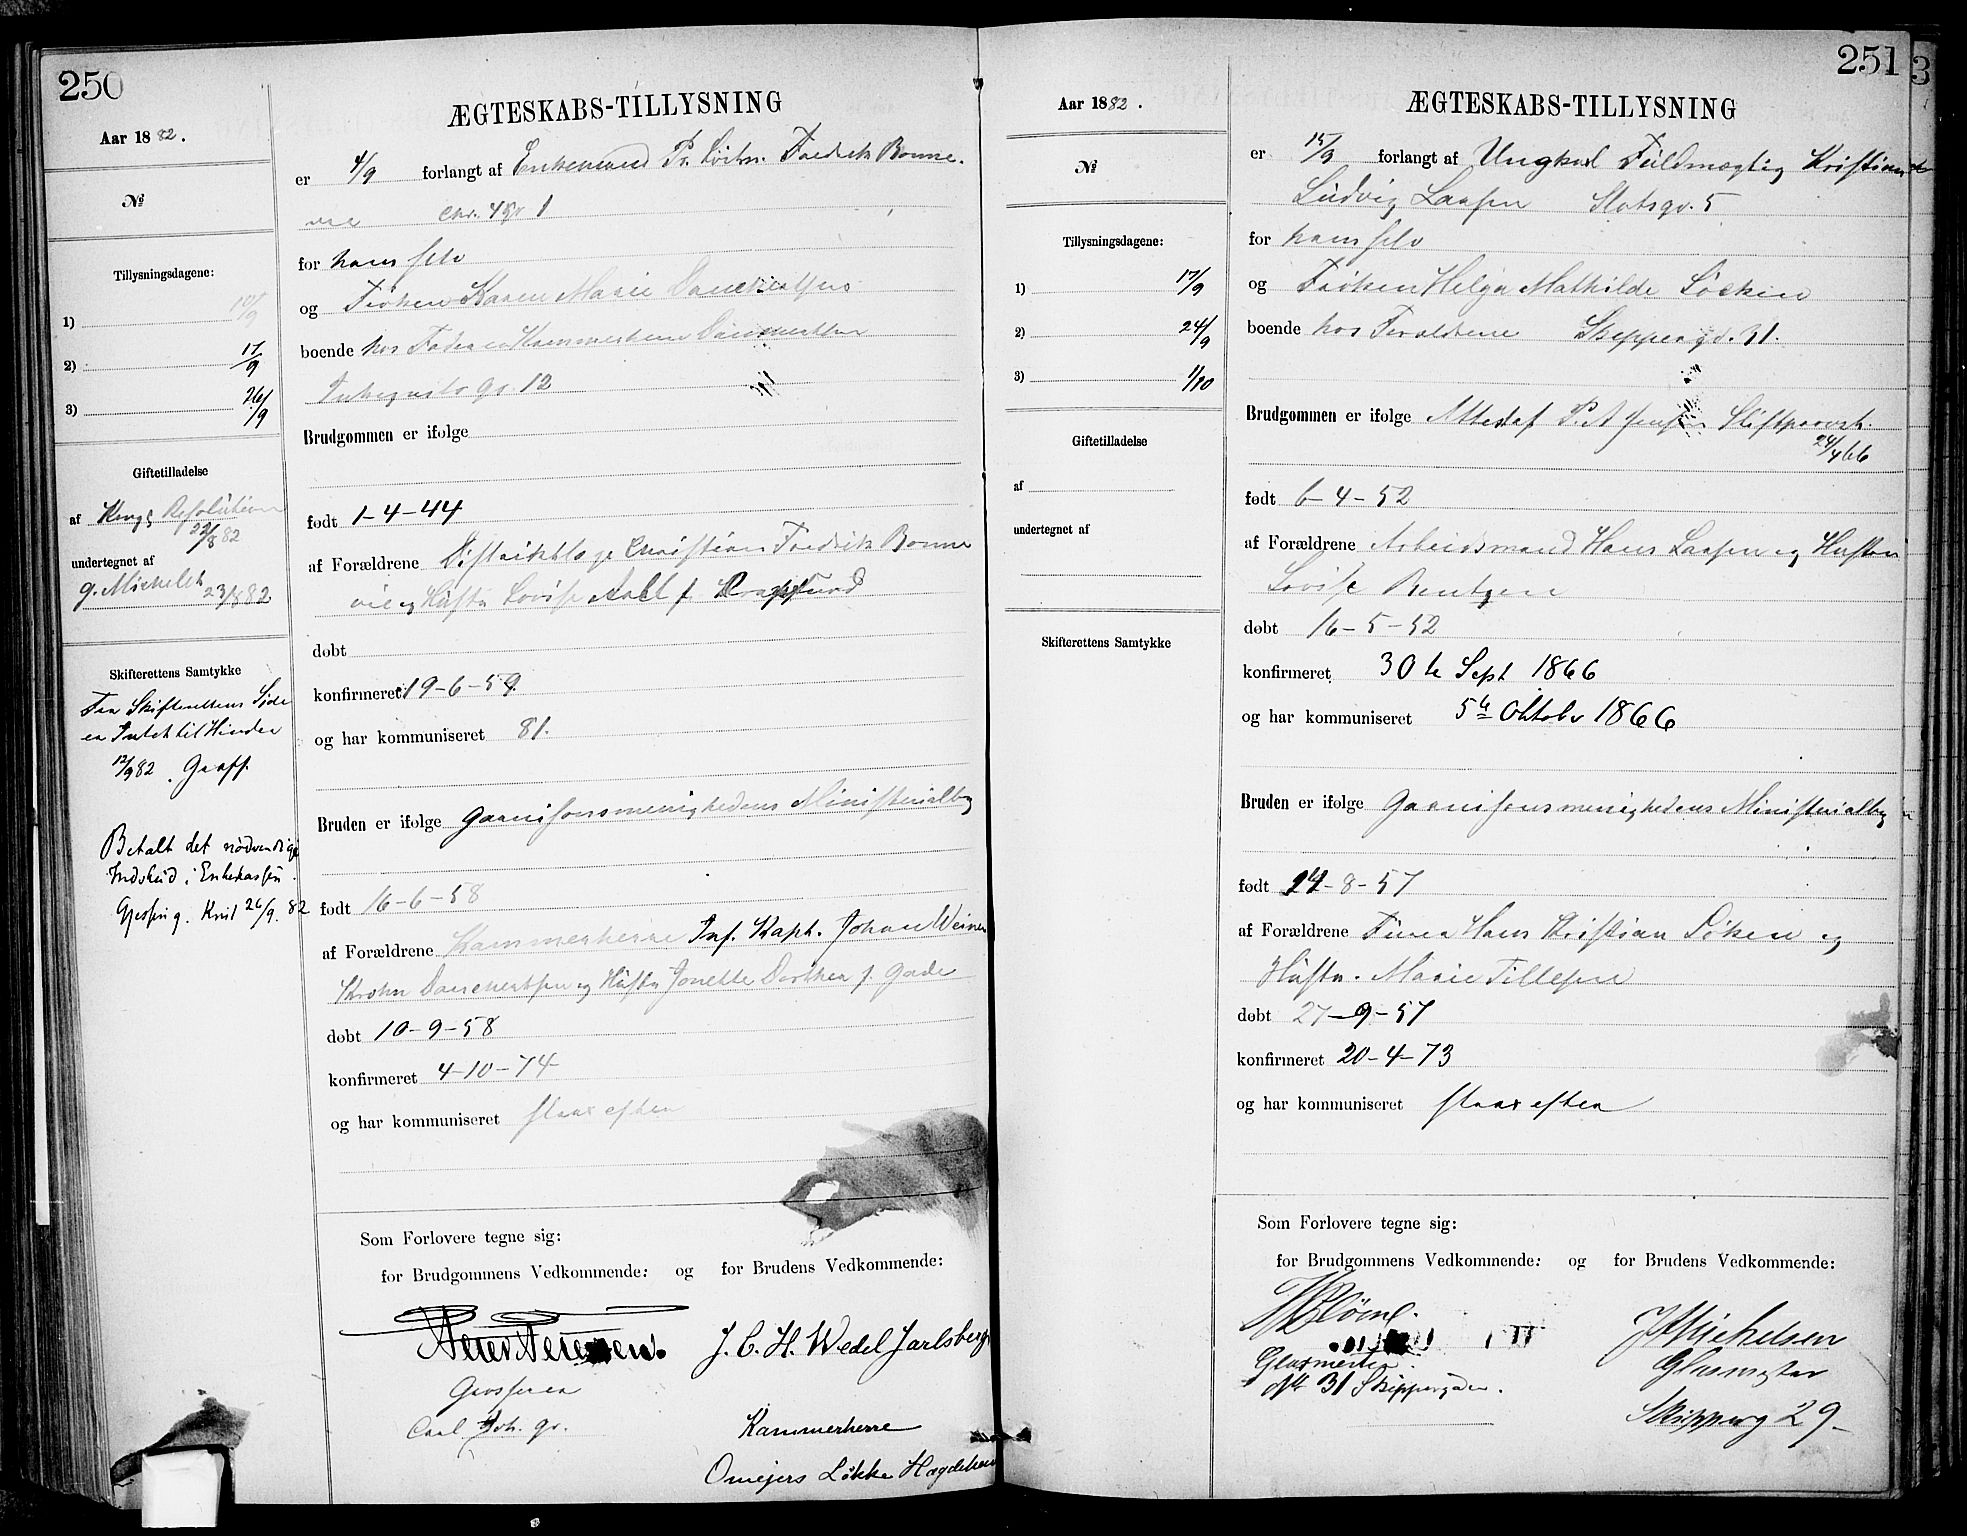 250
Aar 1882.
№
Tillysningsdagene:
1) 10/9
2) 17/9
3) 24/9
Giftetilladelse
af Kongs Resolution
22/8 82
undertegnet af
G. Michelet
23/8 82.
Skifterettens Samtykke
Fra Skifterettens Side
er Intet til Hinder
12/9 82. Graff.
Betalt det nødvendige
Indskud i Enkekassen.
Gjessing. Knit 26/9. 82
ÆGTESKABS-TILLYSNING
er 4/9 forlangt af Enkemand Pr. Løitn. Fredrik Bonne-
vie
for ham selv
og Frøken Karen Marie Danchertsen
boende hos Faderen Kammerherre Danchertsen
Inkognito gr. 12
Brudgommen er ifølge
født 1-4-44
af Forældrene Distriktslæge Christian Fredrik Bonne
vie og Hustru Lovise Aall f.
døbt
konfirmeret 19-6-59.
og har kommuniseret 81.
Bruden er ifølge Garnisonsmenighedens Ministerialbog
født 16-6-58
af Forældrene Kammerherre Inf. Kapt. Johan Werner
Krohn Danchertsen og Hustru Jonette Dorthea f. Gade
døbt 10-9-58
konfirmeret 4-10-74
og har kommuniseret strax efter
Som Forlovere tegne sig:
for Brudgommens Vedkommende: og for Brudens Vedkommende:
Peter Petersen. J. C. H. Wedel Jarlsberg
Grosserer
Carl Joh. gr. Kammerherre
Løkke Hægdehaug
251
Aar 1882.
№
Tillysningsdagene:
1) 17/9
2) 24/9
3) 1/10
Giftetilladelse
af
undertegnet af
Skifterettens Samtykke
ÆGTESKABS-TILLYSNING
er 15/9 forlangt af Ungkarl Fuldmægtig Kristian
Ludvig Larsen Slotsgd. 5
for ham selv
og Frøken Helga Mathilde Løken
boende hos Forældrene Skippergd. 31.
Brudgommen er ifølge Attest af P. A. Jensen Stiftsprovst.
24/4 66
født 6-4-52
af Forældrene Arbeidsmand Hans Larsen og Hustru
Lovise Rentzen
døbt 16-5-52
konfirmeret 30te Sept 1866
og har kommuniseret 5te Oktober 1866
Bruden er ifølge Garnisonsmenighedens Ministerialbog
født 24-8-57
af Forældrene Furer Hans Kristian Løken og
Hustr. Marie Tillesen
døbt 27-9-57
konfirmeret 20-4-73
og har kommuniseret straxs efter
Som Forlovere tegne sig:
for Brudgommens Vedkommende: og for Brudens Vedkommende:
Michelsen
Glasmester Glasmester
№ 31 Skippergaden. Skipperg 29-